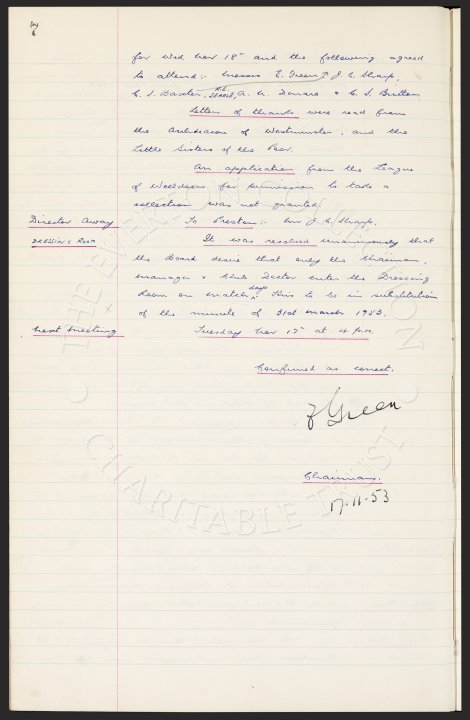 for Wed Nov 18th and the following agreed
to attend:- Messrs E. Green, J. C. Sharp,
C. S. Baxter, R.E. SEARLE, A. W. Denaro & C. S. Britten
Letters of thanks were read from
the Archdeacon of Westminster, and the
Little Sisters of the Poor.
An application from the League
of Welldoers for permission to take a
collection was not granted
Director Away To Preston:- Mr J. C. Sharp.
DRESSING ROOM It was resolved unanimously that
the Board desire that only the Chairman,
Manager & Club Doctor enter the Dressing
Room on match days. This to be in substitution
of the minute of 31st March 1953.
Next Meeting Tuesday Nov 17th at 4 P.M.
Confirmed as correct.
Green
Chairman.
17-11-53
THE EVERTON
CHARITABLE TRUST